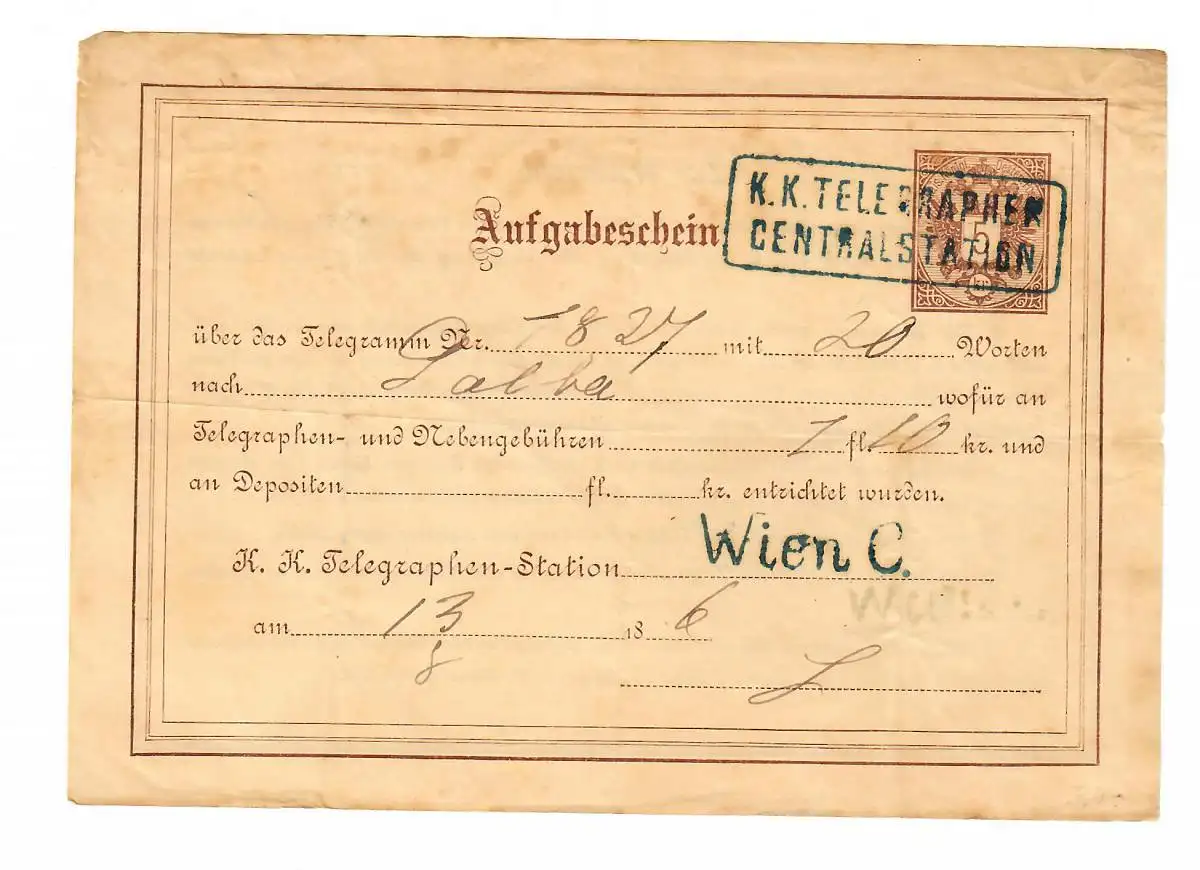 K.K. TELEGRAPHEN
CENTRALSTATION
5
kr.
Aufgabeschein
über das Telegramm Nr. 7827 mit 20 Worten
nach wofür an
Telegraphen- und Nebengebühren 1 fl. 10 kr. und
an Depositen fl. kr. entrichtet wurden.
K. K. Telegraphen-Station Wien C.
am 13/8 18 6